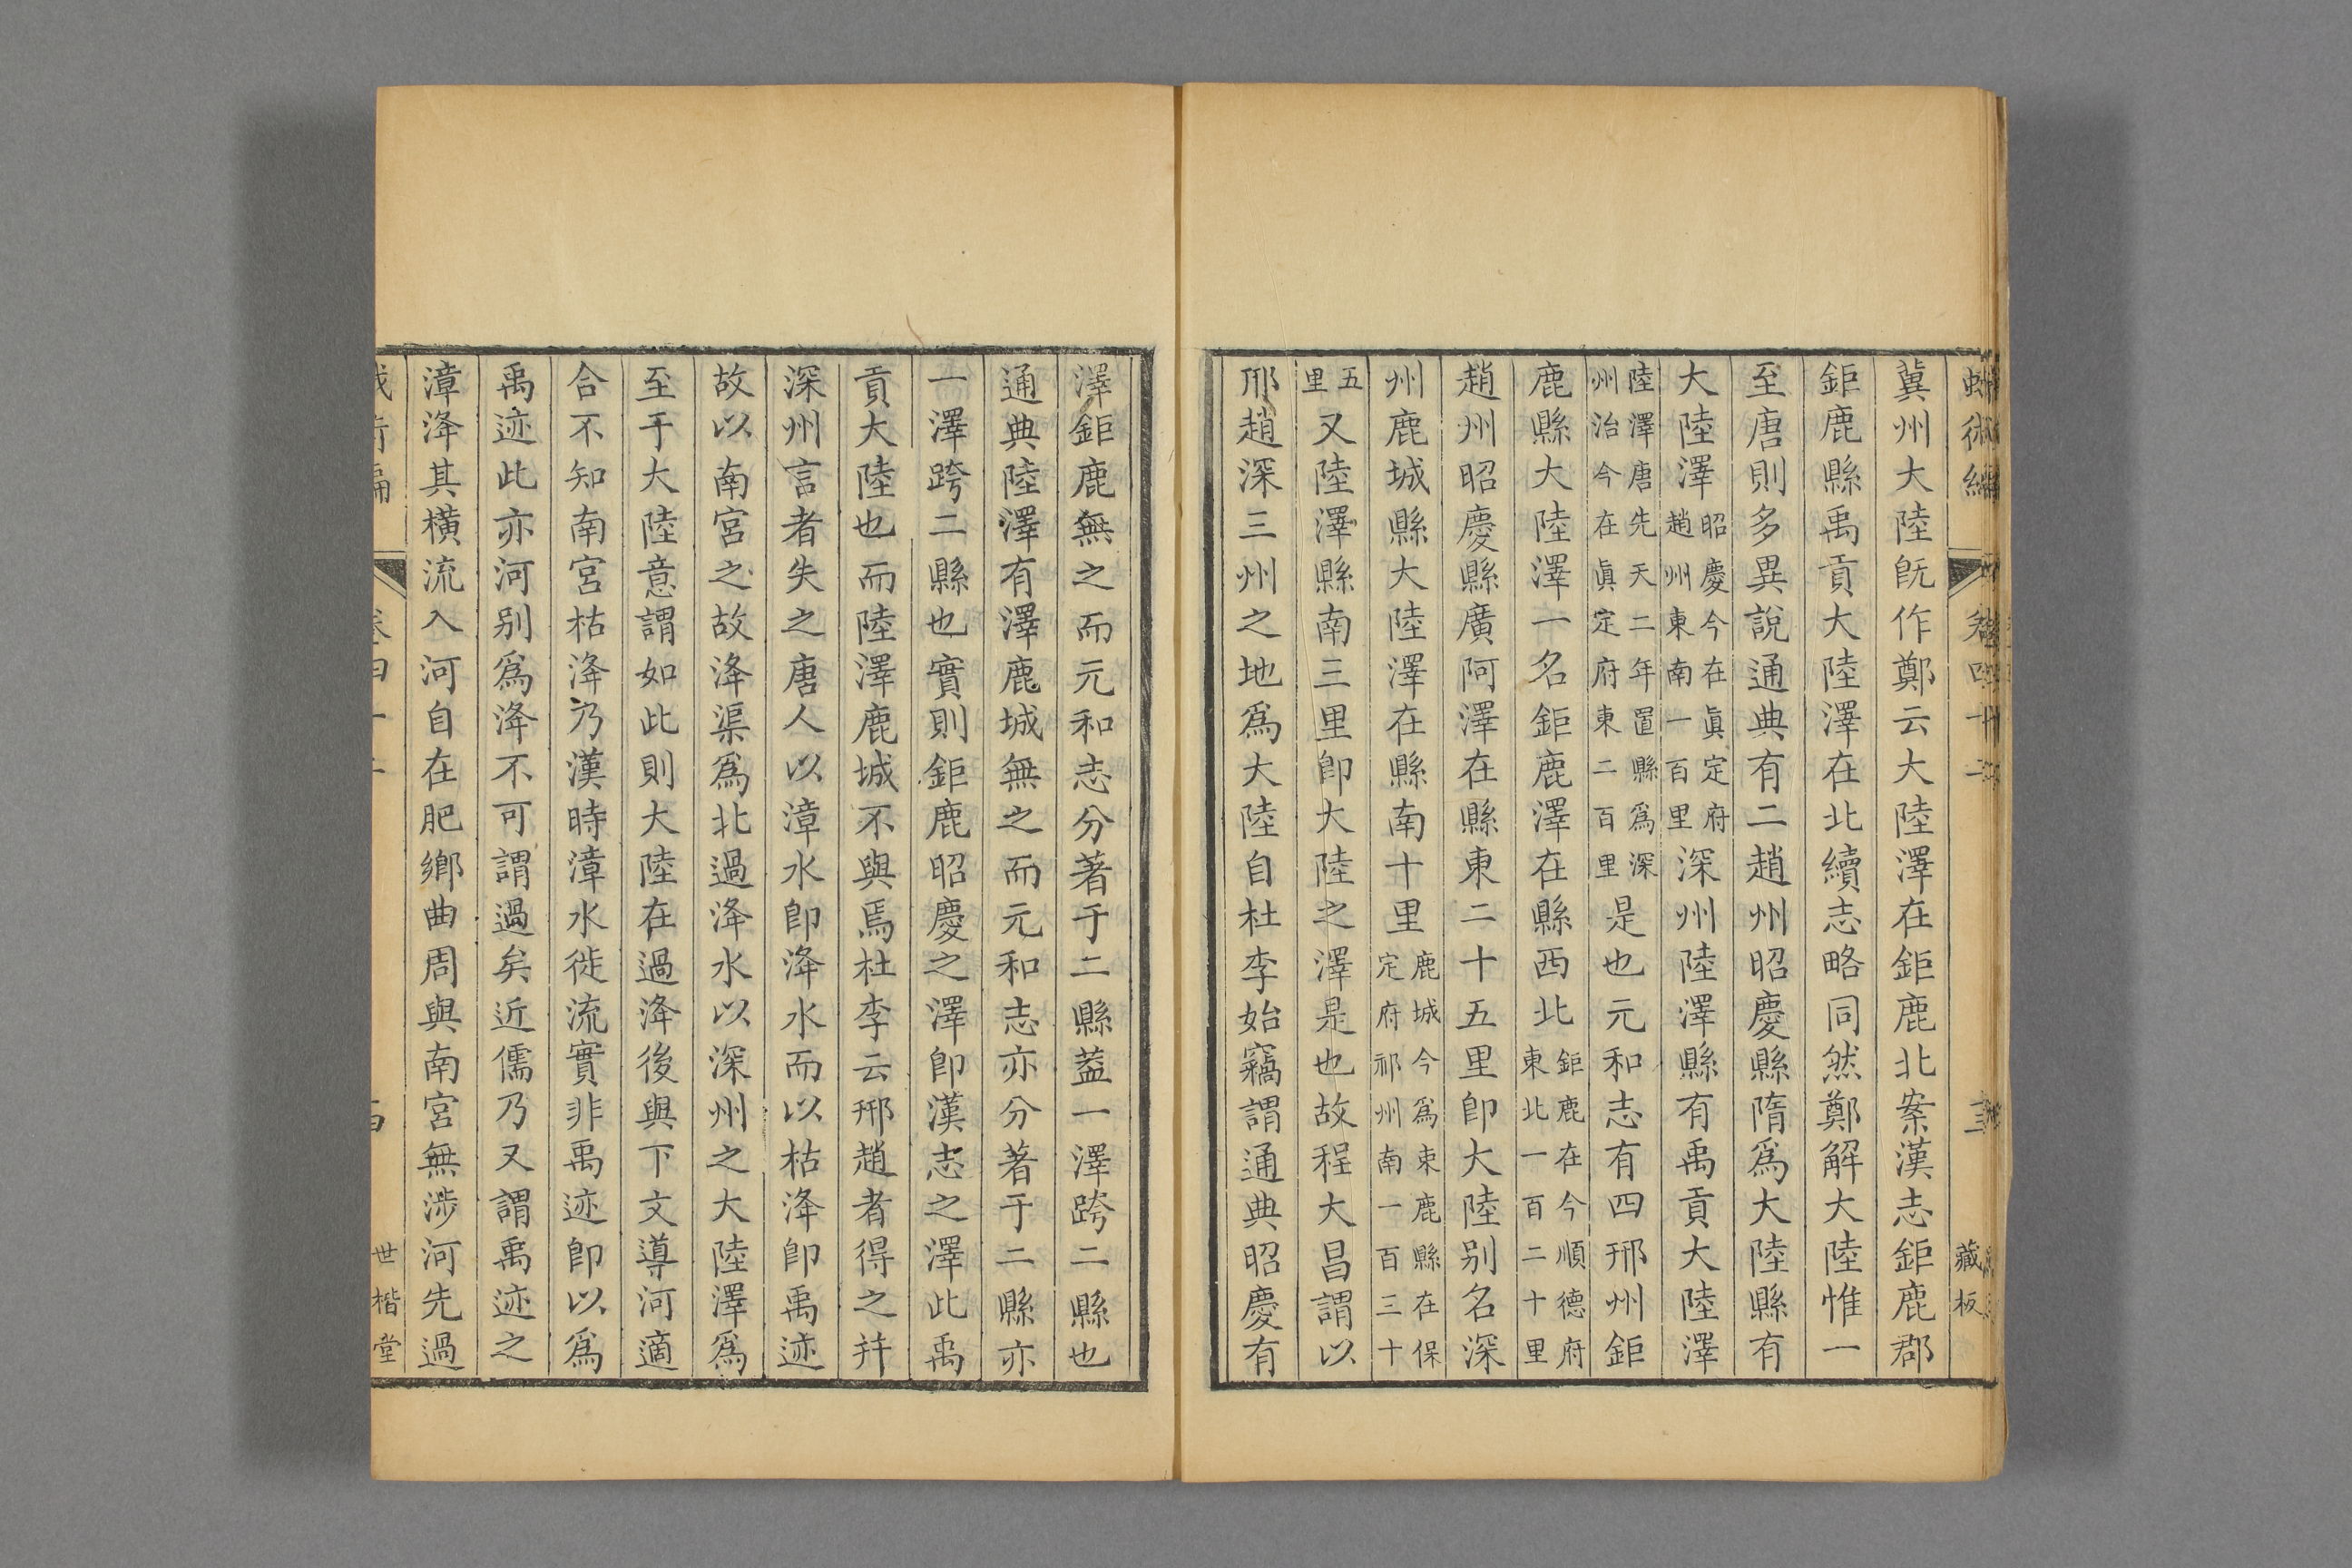 冀州大陸旣作鄭云大陸澤在鉅鹿北案漢志鉅鹿郡
鉅鹿縣禹貢大陸澤在北續志略同然鄭解大陸惟一
至唐則多異說通典有二趙州昭慶縣隋爲大陸縣有
大陸澤昭慶今在眞定府趙州東南一百里深州陸澤縣有禹貢大陸澤
陸澤唐先天二年置縣爲深州治今在眞定府東二百里是也元和志有四邢州鉅
鹿縣大陸澤一名鉅鹿澤在縣西北鉅鹿在今順德府東北一百二十里
趙州昭慶縣廣阿澤在縣東二十五里卽大陸別名深
州鹿城縣大陸澤在縣南十里鹿城今爲束鹿縣在保定府祁州南一百三十
五里又陸澤縣南三里卽大陸之澤是也故程大昌謂以
邢趙深三州之地爲大陸自杜李始竊謂通典昭慶有
澤鉅鹿無之而元和志分著于二縣蓋一澤跨二縣也
通典陸澤有澤鹿城無之而元和志亦分著于二縣亦
一澤跨二縣也實則鉅鹿昭慶之澤卽漢志之澤此禹
貢大陸也而陸澤鹿城不與焉杜李云邢趙者得之幷
深州言者失之唐人以漳水卽洚水而以枯洚卽禹迹
故以南宮之故洚渠爲北過洚水以深州之大陸澤爲
至于大陸意謂如此則大陸在過洚後與下文導河適
合不知南宮枯洚乃漢時漳水徙流實非禹迹卽以爲
禹迹此亦河別爲洚不可謂過矣近儒乃又謂禹迹之
漳洚其橫流入河自在肥鄉曲周與南宮無涉河先過
世楷堂
藏板